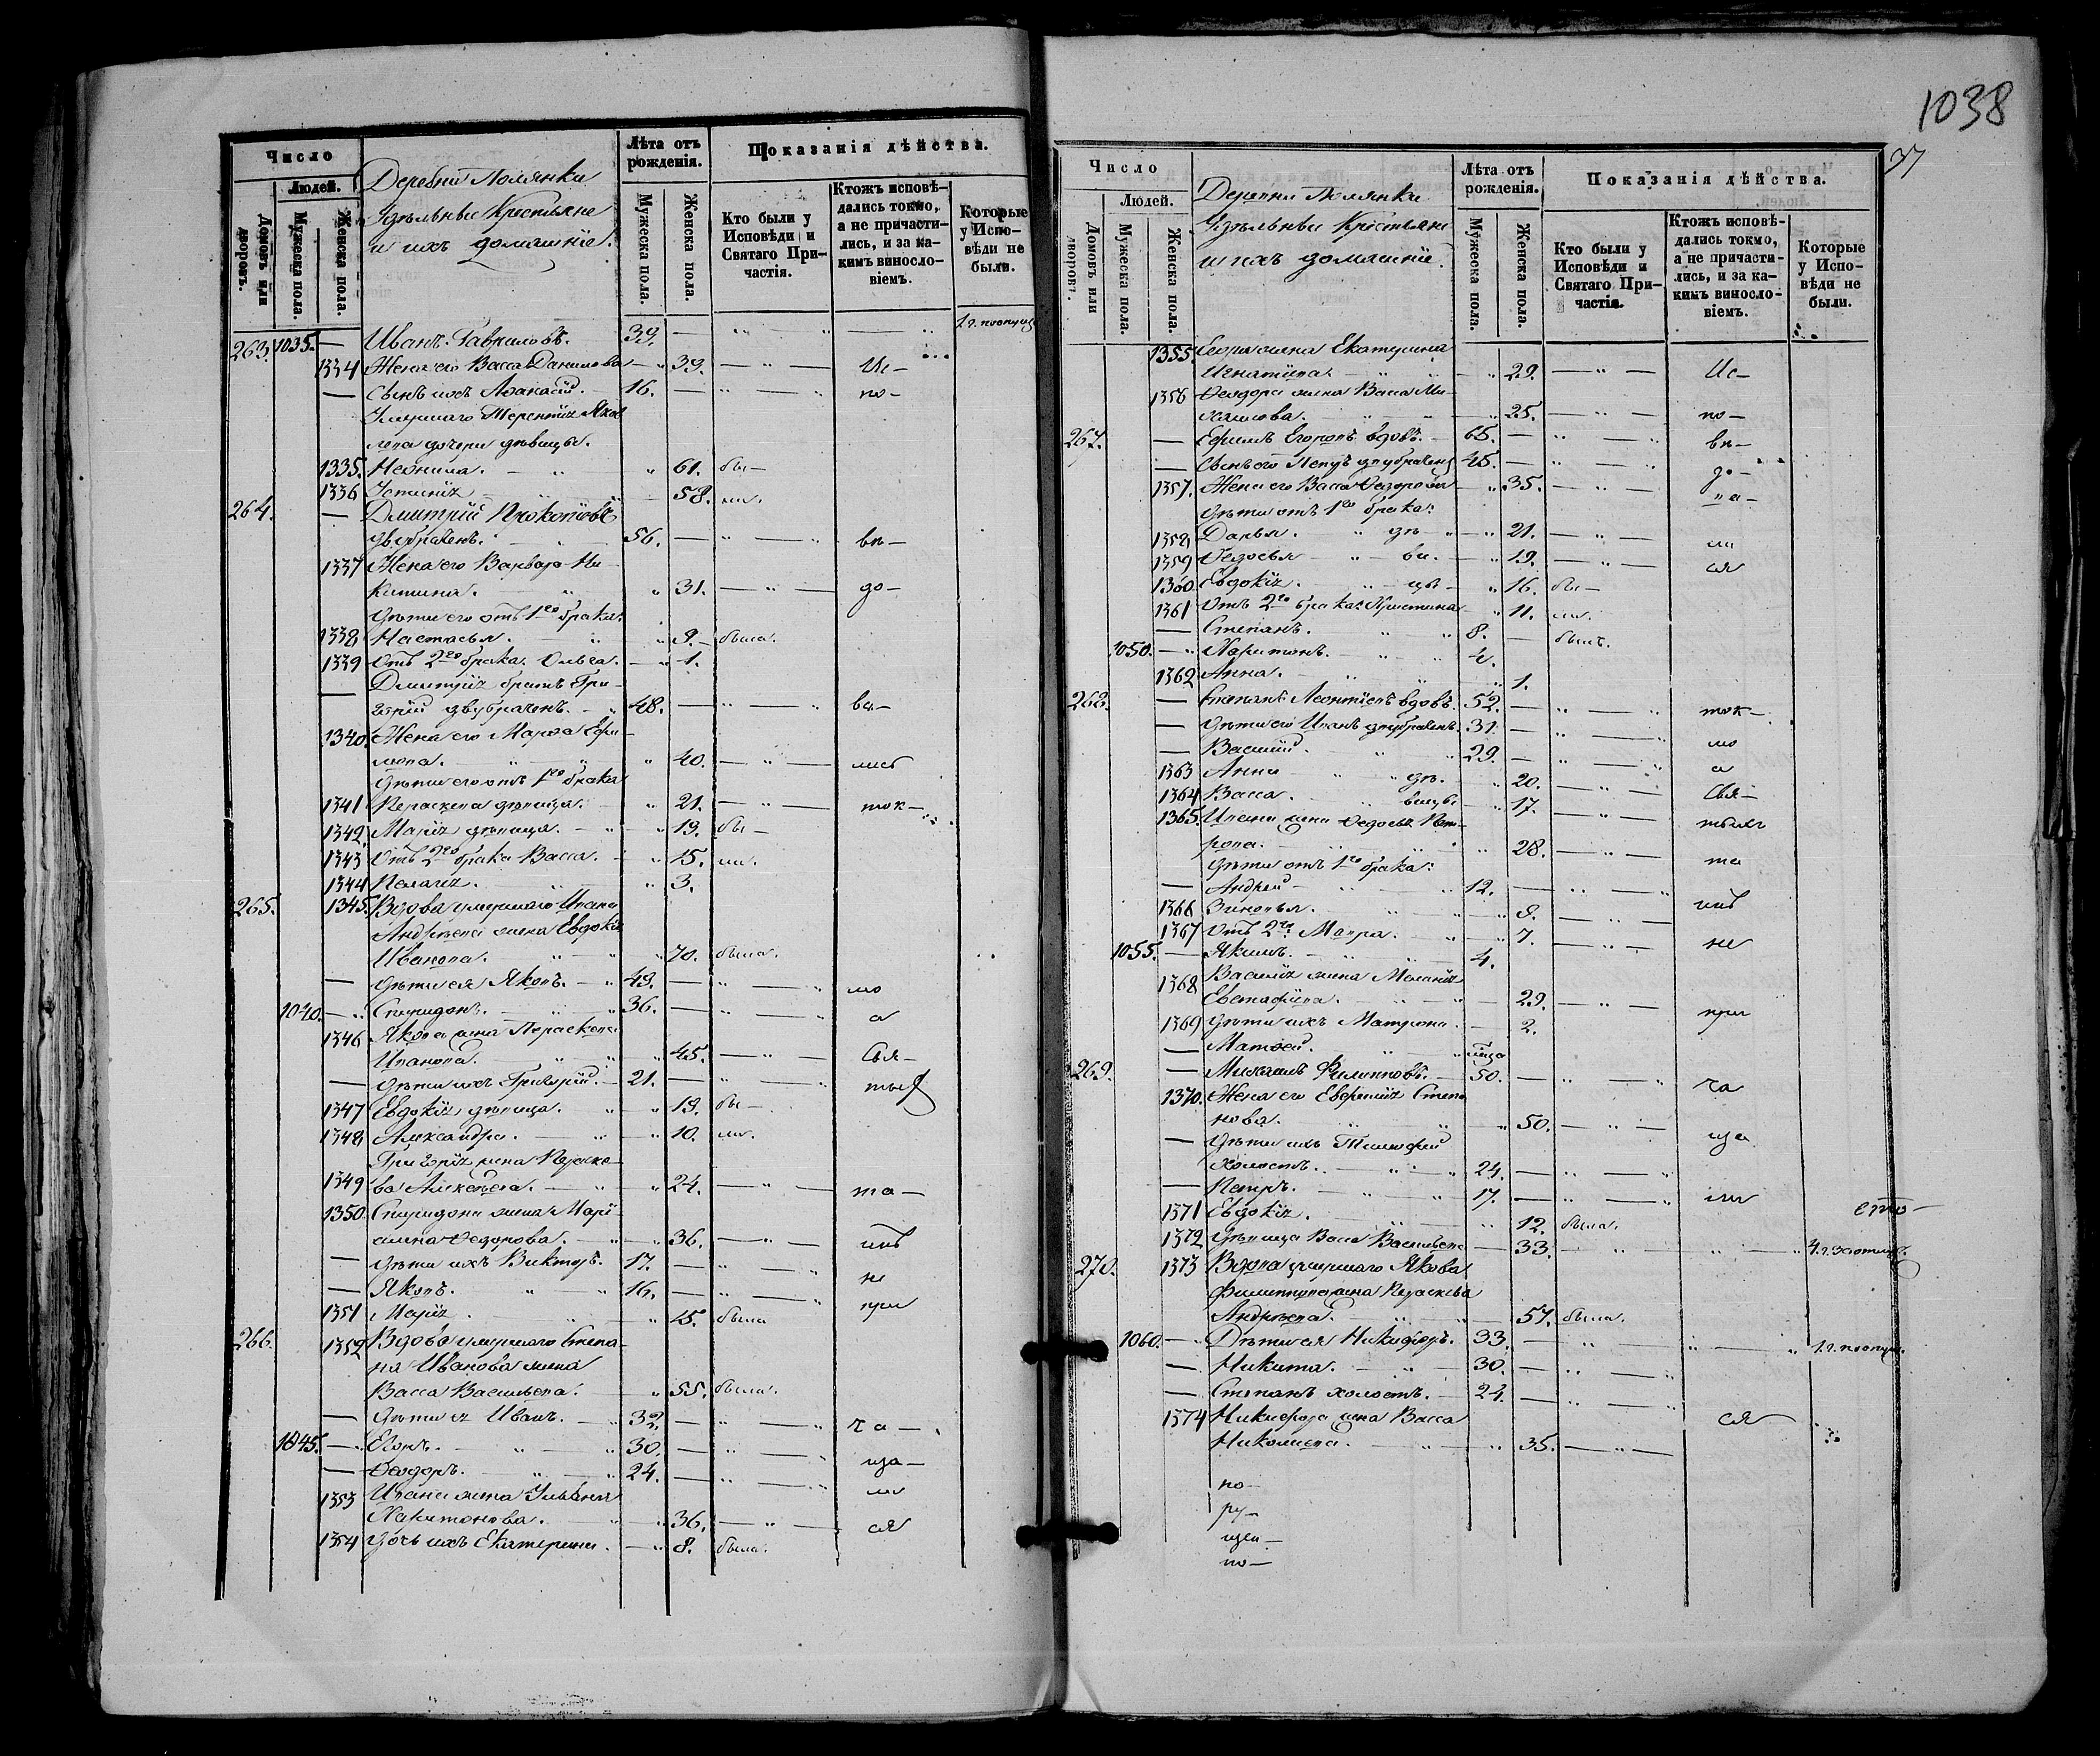 Число
Людей.
Домовъ или дворовъ.
Мужеска пола.
Женска пола.
Деревни Полянки
Удѣльные Крестьяне
и ихъ домашніе.
Лѣта отъ рожденія.
Мужеска пола.
Женска пола.
Показанія дѣйства.
Кто были у Исповѣди и Святаго Причастія.
Ктожъ исповѣ-
дались токмо,
а не причасти-
лись, и за ка-
кимъ винос­ло-
віемъ.
Которые
у Испо-
вѣди не
были.
263. 1035. — Иванъ Гавриловъ. 39.
1334 Жена его Васса Данилова 39. Ис-
— Сынъ ихъ Аѳанасій. 16. по-
Умершаго Терентія Яков
лева дочери дѣвицы.
1335. Неонила. 61. бы-
1336 Устинія 58. ли.
264. — Дмитрій Прокопіовъ
двубраченъ. 56. вѣ-
1337 Жена его Варвара Ни-
китина. 31. до-
Дѣти его отъ 1го брака:
1338 Настасья. 9. была.
1339 Отъ 2го брака Ольга. 1.
Дмитрія братъ Гри-
— горій двубраченъ. 48. ва-
1340. Жена его Марѳа Ефи-
мова. 40. лись
Дѣти его отъ 1го брака
1341 Параскева дѣвица. 21. ток-
1342. Марія дѣвица. 19. бы-
1343 Отъ 2го брака Васса. 15. ли.
1344 Пелагія. 3.
265. 1345. Вдова умершаго Ивана
Андреева жена Евдокія
Иванова. 70. была.
— Дѣти ея Яковъ. 49. мо
1040. — Спиридонъ. 36. а
1346 Якова жена Параскева
Иванова. 45. Свя-
— Дѣти ихъ Григорій. 21. тых
1347 Евдокія дѣвица. 19. бы-
1348 Александра. 10. ли.
Григорія жена Параске-
1349 ва Алексеева. 24. та-
1350. Спиридона жена Марі-
амна Ѳедорова. 36. инъ
— Дѣти ихъ Викторъ. 17. не
— Яковъ. 16. при
1351 Марія 15. была
266. 1352 Вдова умершаго Степа-
на Иванова жена
Васса Васильева. 55. была.
— Дѣти ея Иванъ. 32. ча-
1045. — Егоръ. 30. ща-
— Ѳеодоръ. 24. ли
1353 Ивана жена Ульянія
Харитонова. 36. ся
1354 Дочь ихъ Екатерина. 8. была.
1038
77
Число
Людей.
Домовъ или дворовъ.
Мужеска пола.
Женска пола.
Деревни Полянки
Удѣльные Крестьяне
и ихъ домашніе.
Лѣта отъ рожденія.
Мужеска пола.
Женска пола.
Показанія дѣйства.
Кто были у Исповѣди и Святаго Причастія.
Ктожъ исповѣ-
дались токмо,
а не причасти-
лись, и за ка-
кимъ винос­ло-
віемъ.
Которые
у Испо-
вѣди не
были.
1355. Егора жена Екатерина
Игнатіева. 29. Ис-
1356 Ѳеодора жена Васса Ми-
хаилова. 25. по-
267. — Ефимъ Егоровъ вдовъ. 65. вѣ-
— Сынъ его Петръ двубраченъ 45. до-
1357. Жена его Васса Ѳедорова 35. ва-
Дѣти отъ 1го брака:
1358 Дарья. дѣ 21. ли
1359 Ѳедосья ви. 19. ся
1360. Евдокія. цы 16. бы-
1361 Отъ 2го брака: Христина 11. ли.
— Степанъ. 8. былъ.
1050. — Харитонъ. 4.
1362 Анна. 1.
268. — Степанъ Леонтіевъ вдовъ. 52. ток-
— Дѣти его Иванъ двубраченъ. 31. мо
— Василій. 29. а
1363 Анна дѣ- 20. Свя-
1364 Васса. вицы. 17. тыхъ
1365. Ивана жена Ѳедосья Пет-
рова. 28. та
Дѣти отъ 1го брака:
— Андрей 12. инъ
1366 Зиновья. 9.
1367 Отъ 2го Мавра. 7. не
1055. — Якимъ. 4.
1368 Василія жена Меланія
Евстафіева. 29. при
1369 Дѣти ихъ Матрона. 2.
— Матвей. 1 года
269. — Михаилъ Филипповъ. 50. ча
1370. Жена его Евгенія Степа
нова. 50. ща
— Дѣти ихъ Тимофей
холостъ. 24.
— Петръ. 17. ли
1371 Евдокія. 12. была.
1372 Дѣвица Васса Васильева 33.
270. 1373 Вдова умершаго Якова
Филиппова жена Параскева
Андреева. 57. была.
1060. — Дѣти ея Никифоръ. 33.
— Никита. 30.
— Степанъ холостъ. 24.
1374 Никифора жена Васса ся
Николаева. 35.
по-
ру-
щен-
по-